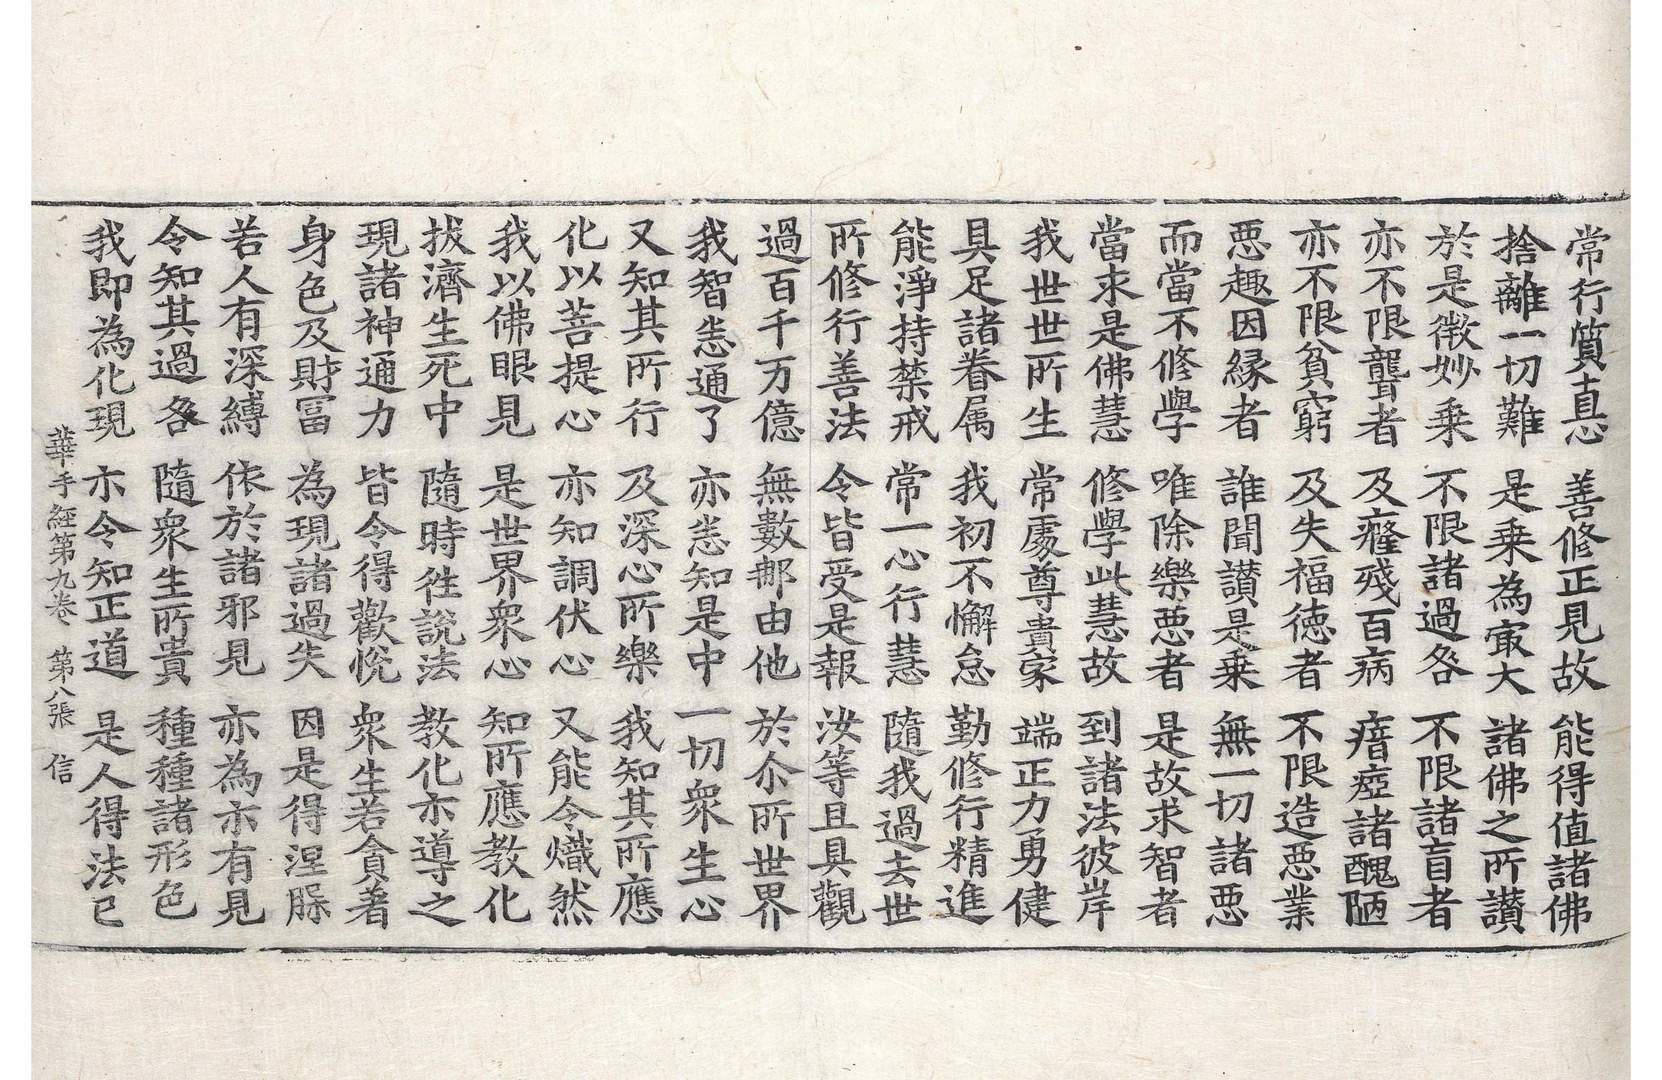 常行質直心　善修正見故　能得值諸佛
捨離一切難　是乗為㝡大　諸佛之所讃
於是微妙乗　不限諸過咎　不限諸盲者
亦不限聾者　及癃殘百病　瘖瘂諸醜陋
亦不限貧窮　及失福徳者　不限造悪業
悪趣因縁者　誰聞讃是乗　無一切諸悪
而當不修學　唯除樂悪者　是故求智者
當求是佛慧　修學此慧故　到諸法彼岸
我世世所生　常處尊貴家　端正力勇健
具足諸眷属　我初不懈怠　勤修行精進
能淨持禁戒　常一心行慧　隨我過去世
所修行善法　令皆受是報　汝等且具觀
過百千万億　無數𨙻由他　於尒所世界
我智悉通了　亦悉知是中　一切衆生心
又知其所行　及深心所樂　我知其所應
化以菩提心　亦知調伏心　又能令熾然
我以佛眼見　是世界衆心　知所應教化
拔濟生死中　隨時徃說法　教化亦導之
現諸神通力　皆令得歡悅　衆生若貪著
身色及財冨　為現諸過失　因是得涅𣩵
若人有深縛　依於諸邪見　亦為亦有見
令知其過咎　隨衆生所貴　種種諸形色
我即為化現　亦令知正道　是人得法已
華手經第九卷　第八張　信